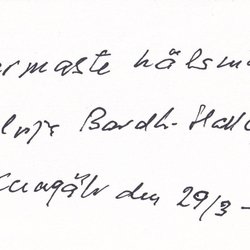 ermaste hälsn
Bardh-Holl
Kungälv den 29/3-